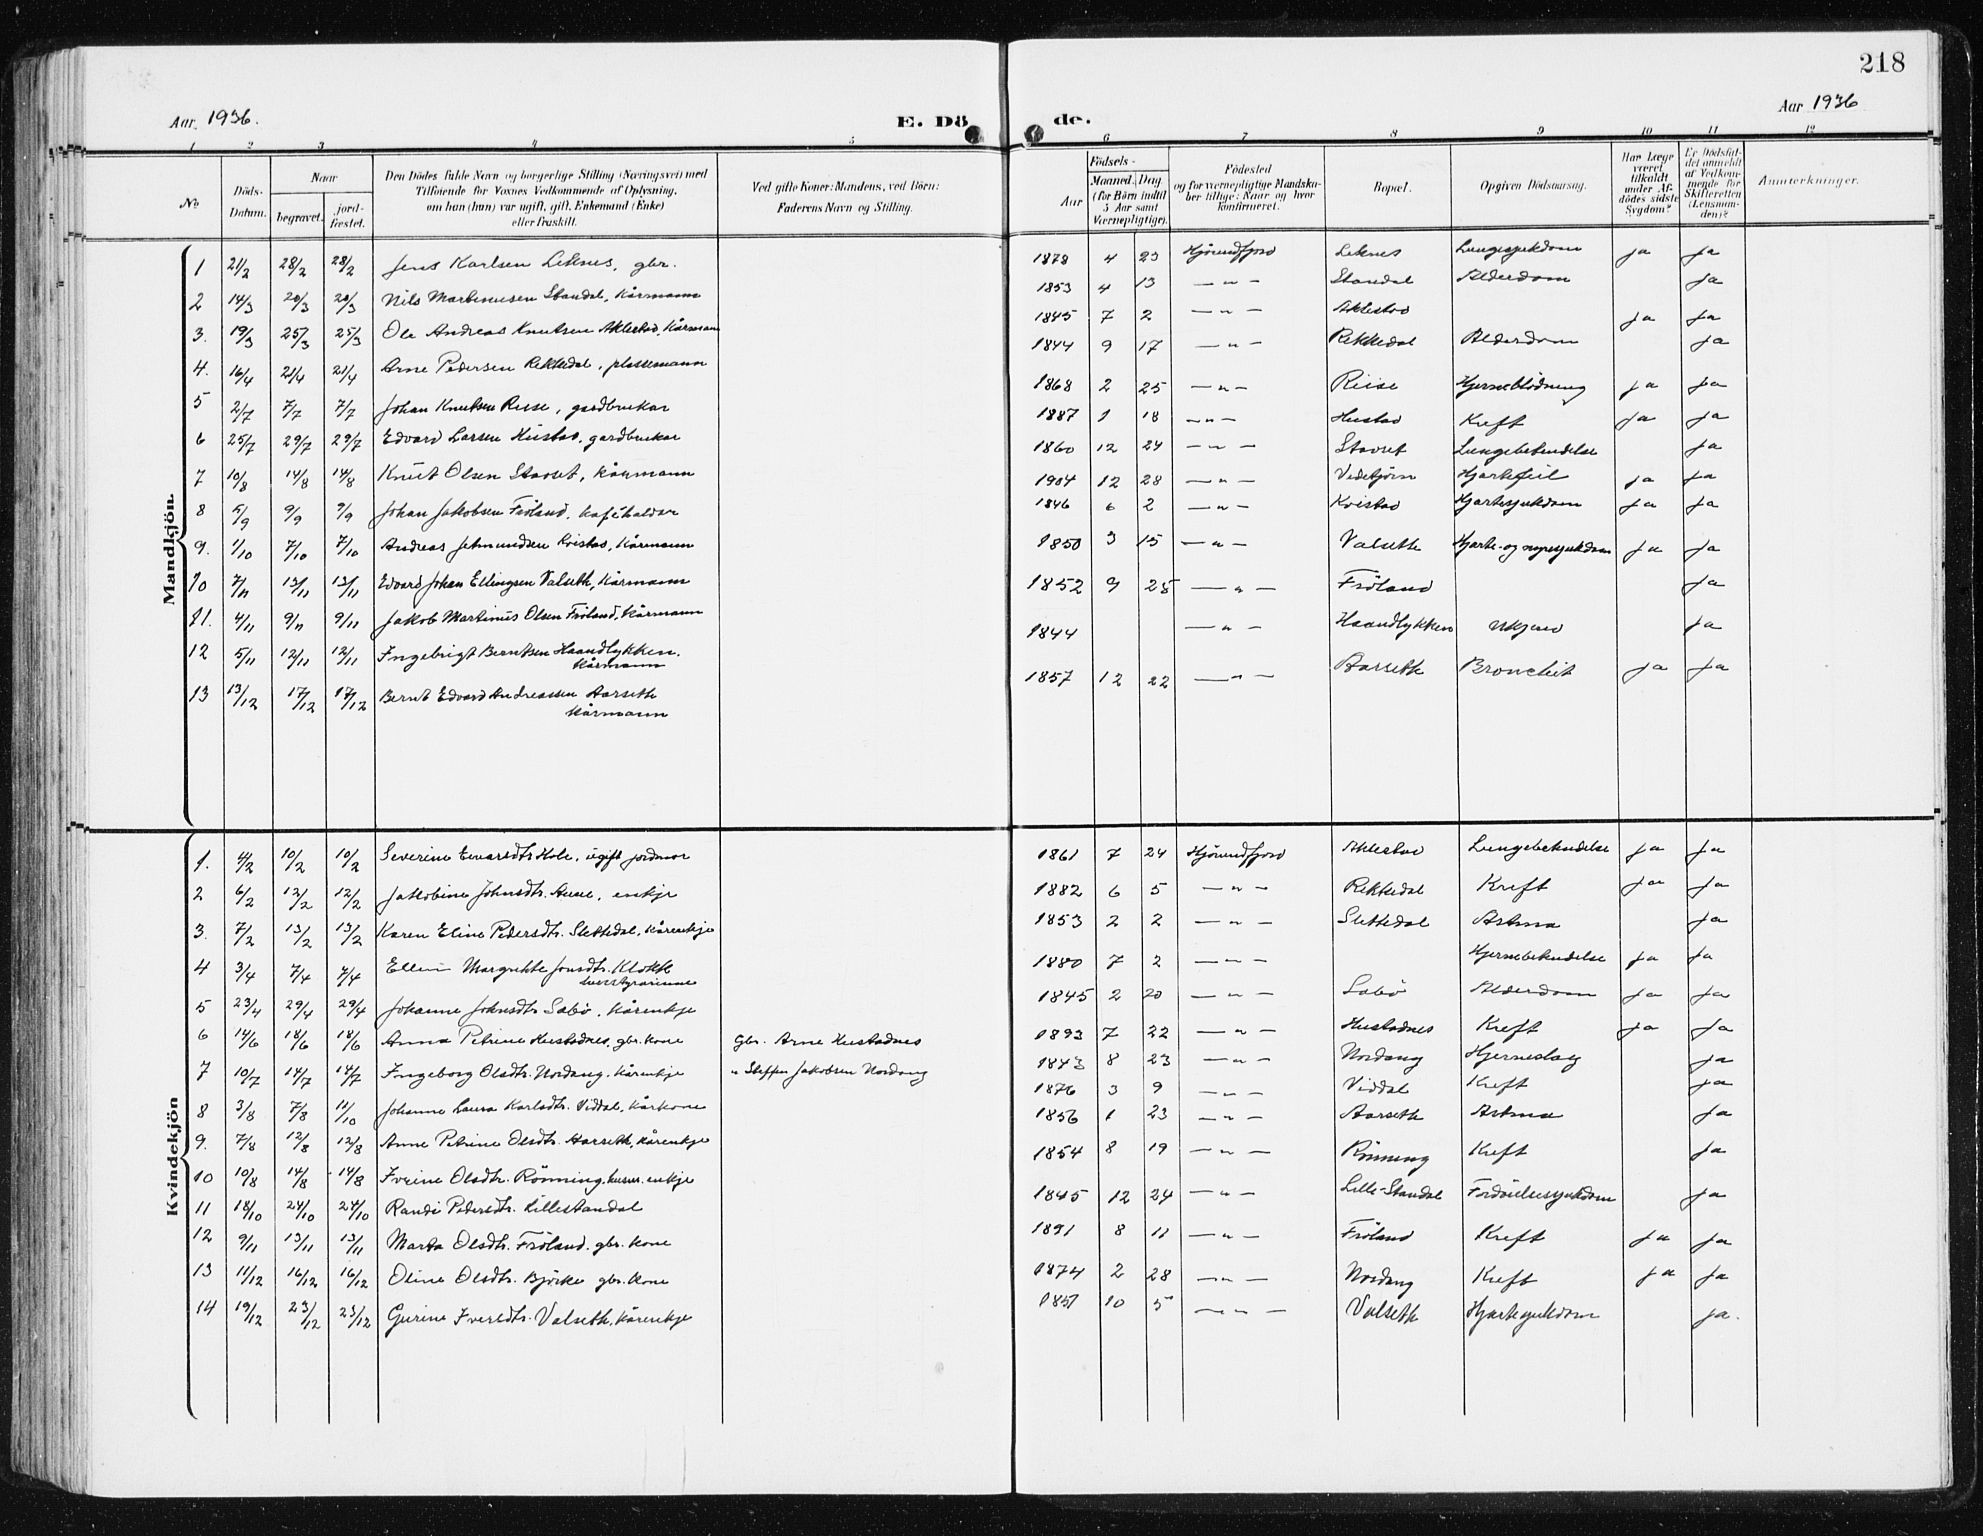 218
Aar 1936.
E. Dö
de.
Aar 1936
1 2 3 4 5 6 7 8 9 10 11 12
No
Döds-Datum.
Naar
begravet.
jord-fæstet.
Den Dödes fulde Navn og borgerlige Stilling (Næringsvei) med
Tilföiende for Voxnes Vedkommende af Oplysning,
om han (hun) var ugift, gift, Enkemand (Enke)
eller fraskilt.
Ved gifte Koner: Mandens, ved Börn:
Faderens Navn og Stilling.
Aar
Födsels-
Maaned. Dag
(for Börn indtil
5 Aar samt
Værnepligtige).
Födested
og for værnepligtige Mandska-
ber tillige: Naar og hvor
konfirmeret.
Bopæl.
Opgiven Dödsaarsag.
Har Læge
været
tilkaldt
under Af-
dödes sidste
Sygdom?
Er Dödsfal-
det anmeldt
af Vedkom-
mende for
Skifteretten
(Lensman-
den)?
Anmærkninger.
Mandkjön.
1 21/2 28/2 28/2 Jens Karlsen Leknes, gbr. 1878 4 23 Hjørundfjord Leknes Lungesjukdom ja ja
2 14/3 20/3 20/3 Nils Martinusen Standal, kårmann 1853 4 13 — " — Standal Alderdom ja
3. 19/3 25/3 25/3 Ole Andreas Knutsen Aklestad, kårmann 1845 7 2 — " — Aklestad ja ja
4. 16/4 21/4 21/4 Arne Pedersen Rekkedal, plassemann 1844 9 17 — " — Rekkedal Alderdom ja
5 2/7 7/7 7/7 Johan Knutsen Riise, gardbrukar 1868 2 25 — " — Riise Hjerneblødning ja ja
6 25/7 29/7 29/7 Edvard Larsen Hustad, gardbrukar 1887 1 18 — " — Hustad Kreft ja ja
7 10/8 14/8 14/8 Knut Olsen Stavset, kårmann 1860 12 24 — " — Stavset Lungebetendelse ja
8 5/9 9/9 9/9 Johan Jakobsen Frøland, kaféhaldar 1904 12 28 — " — Viddetjørn Hjartefeil ja ja
9. 1/10 7/10 7/10 Andreas Jetmundsen Kvistad, kårmann 1846 6 2 — " — Kvistad Hjartesjukdom ja ja
10 7/11 13/11 13/11 Edvard Johan Ellingsen Valseth, kårmann 1850 3 15 — " — Valseth Hjarte- og nyresjukdom ja ja
11. 4/11 9/11 9/11 Jakob Martinus Olsen Frøland, kårmann 1852 9 25 — " — Frøland ja
12 5/11 12/11 12/11 Ingebrigt Berntsen Haandlykken. 1844 — " — Haandlykken Ukjend ja
kårmann
13 13/12 17/12 17/12 Bernt Edvard Andreassen Aarseth 1857 12 22 — " — Aarseth Bronchit ja ja
kårmann
Kvindekjön
1. 4/2 10/2 10/2 Severine Evardtr. Hole, ugift jordmor 1861 7 24 Hjørundfjord Aklestad Lungebetendelse ja ja
2 6/2 12/2 12/2 Jakobine Johnsdtr. Aure, enkje 1882 6 5 — " — Rekkedal Kreft ja ja
3. 7/2 13/2 13/2 Karen Eline Pedersdtr. Slettedal, kårenkje 1853 2 2 — " — Slettedal Astma ja
4 3/4 7/4 7/4 Margrethe Jonsdtr. Klokk 1880 7 2 — " — Hjernebetendelse ja ja
5 23/4 29/4 29/4 Johanne Johnsdtr Sæbø, kårenkje 1845 2 20 — " — Sæbø Alderdom ja ja
6 14/6 18/6 18/6 Anna Petrine Hustadnes, gbr. kone gbr. Arne Hustadnes 1893 7 22 — " — Hustadnes Kreft ja ja
7 10/7 14/7 14/7 Ingeborg Olsdtr. Nordang, kårenkje " Steffen Jakobsen Nordang 1843 8 23 — " — Nordang Hjerneslag ja
8 3/8 7/8 11/10 Johanne Laura Karlsdtr. Viddal, kårkone 1876 3 9 — " — Viddal Kreft ja
9. 7/8 12/8 12/8 Anne Petrine Olsdtr. Aarseth, kårenkje 1856 1 23 — " — Aarseth Astma ja
10 10/8 14/8 14/8 Ivrine Olsdtr. Rønning, husm. enkje 1854 8 19 — " — Rønning Kreft ja
11 18/10 24/10 24/10 Randi Pedersdtr. Lillestandal 1845 12 24 — " — Lille-Standal Fordøielsesjukdom ja
12 9/11 13/11 13/11 Marta Olsdtr. Frøland. gbr. kone 1891 8 11 — " — Frøland Kreft ja ja
13 11/12 16/12 16/12 Oline Olsdtr. Bjørke gbr. kone 1874 2 28 — " — Nordang Kreft ja ja
14 19/12 23/12 23/12 Gurine Iversdtr. Valseth, kårenkje 1851 10 5 — " — Valseth Hjartesjukdom ja.